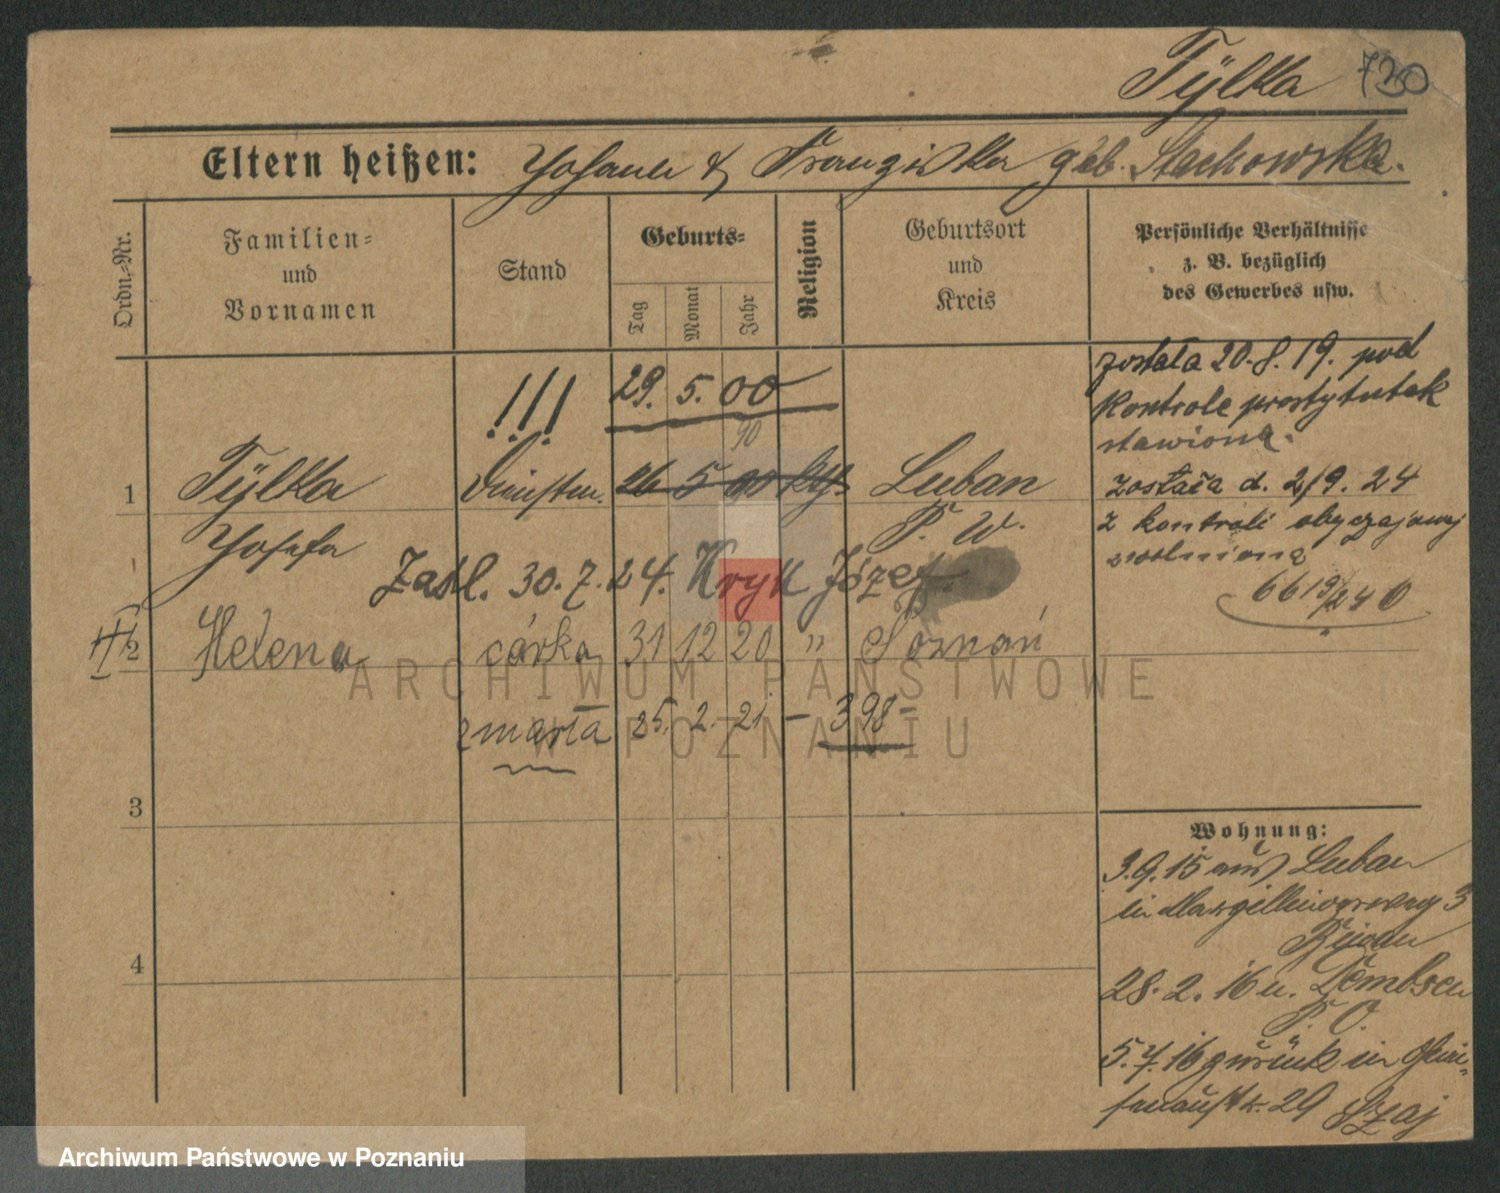 Tÿlka 730
Eltern heißen: Johann & Franziska geb. Stachowska.
Ordn.-Nr.
Familien-
und
Vornamen
Stand
Geburts-
Tag
Monat
Jahr
Religion
Geburtsort
und
Kreis
Persönliche Verhältnisse
z. B. bezüglich
des Gewerbes usw.
została 20.8.19. pod
kontrole prostytutek
stawioną.
została d. 2/9. 24
z kontroli obyczajowej
zwolniona
6619/24 O
!!! 29. 5. 00
90
1 Tÿlka 26 5 90 kth Luban
Josefa P. W.
Zaśl. 30.7.24. Kryk Józef.
2 Helena córka 31 12 20 " Poznań
zmarła 25. 2. 21 – 398 –
3
4
Wohnung:
3.9.15 aus Luban
in 3
28. 2. 16 n. Dembsen
P. O.
5.4.16 zurück in
29
ARCHIWUM PAŃSTWOWE
W POZNANIU
Archiwum Państwowe w Poznaniu